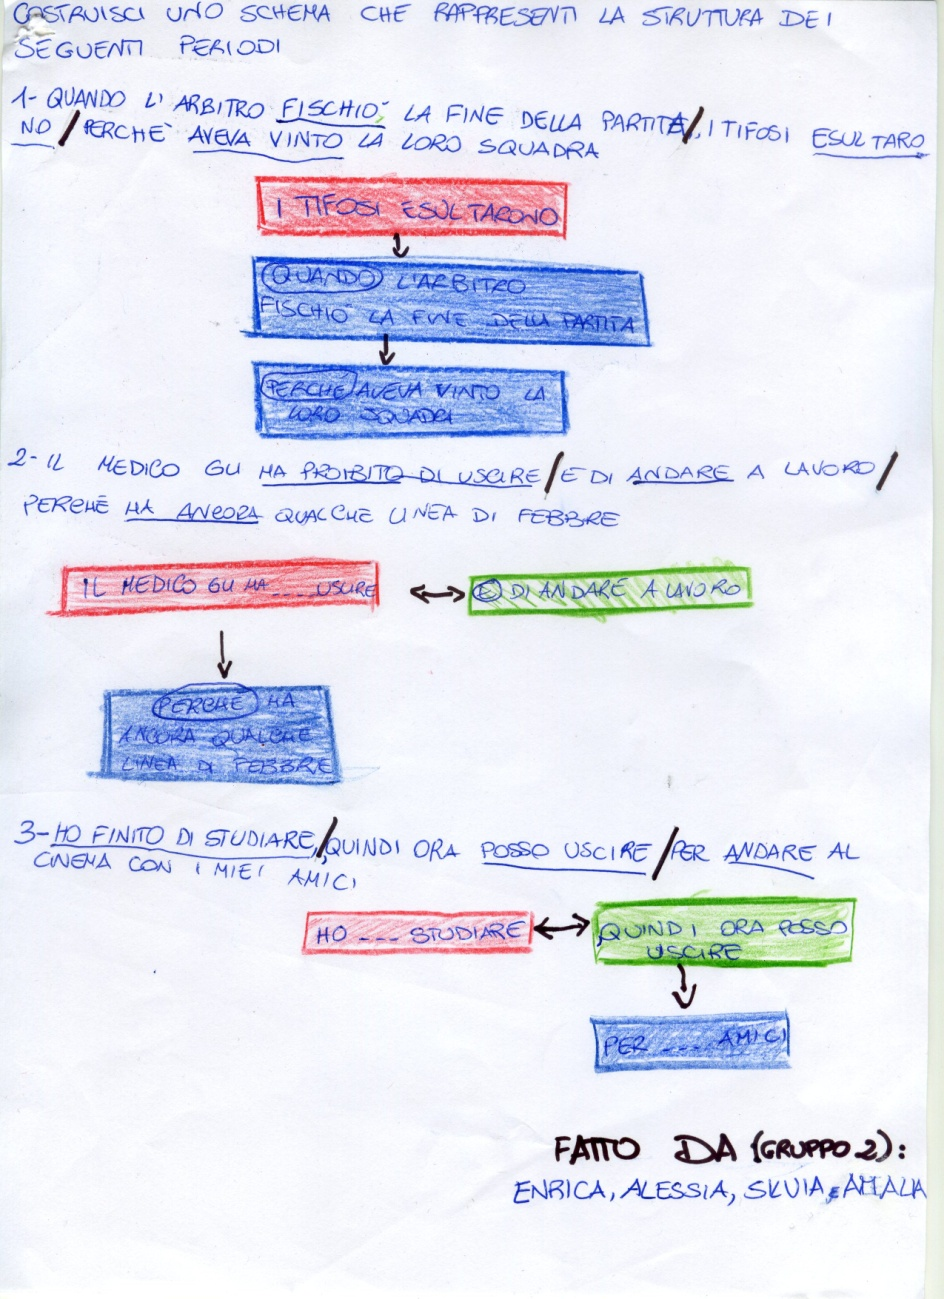 COSTRUISCI UNO SCHEMA CHE RAPPRESENTI LA STRUTTURA DEI
SEGUENTI PERIODI
1- QUANDO L'ARBITRO FISCHIÒ, LA FINE DELLA PARTITA/, I TIFOSI ESULTARO
NO/PERCHÈ AVEVA VINTO LA LORO SQUADRA
I TIFOSI ESULTARONO
QUANDO L'ARBITRO
FISCHIÒ LA FINE DELLA PARTITA
PERCHÈ AVEVA VINTO LA
LORO SQUADRA
2- IL MEDICO GLI HA PROIBITO DI USCIRE/E DI ANDARE A LAVORO/
PERCHÈ HA ANCORA QUALCHE LINEA DI FEBBRE
IL MEDICO GLI HA ____ USCIRE
E DI ANDARE A LAVORO
PERCHÈ HA
ANCORA QUALCHE
LINEA DI FEBBRE
3- HO FINITO DI STUDIARE,/QUINDI ORA POSSO USCIRE/PER ANDARE AL
CINEMA CON I MIEI AMICI
HO --- STUDIARE
,QUINDI ORA POSSO
USCIRE
PER ---- AMICI
FATTO DA (GRUPPO 2):
ENRICA, ALESSIA, SILVIA E AMALIA